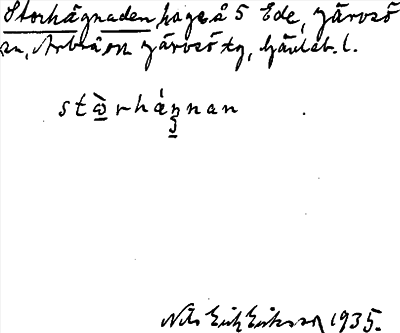 Storhägnaden, hage å 5 Ede, Järvsö
sn, Arbrå och Järvsö tg, Gävleb. l.
stὼrhág̲nnan
Nils Erik Eriksson 1935.